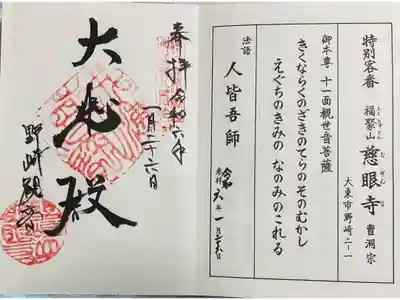 特別客番
福聚山 慈眼寺 曹洞宗
ふくじゅさん じげんじ
大東市野崎二ー一
御本尊 十一面観世音菩薩
きくならくのざきのてらのそのむかし
えぐちのきみの なのみのこれる
法語 人皆吾師
参拝 令和六年一月二十六日
奉拝 令和六年
一月二十六日
大悲殿
野崎観音